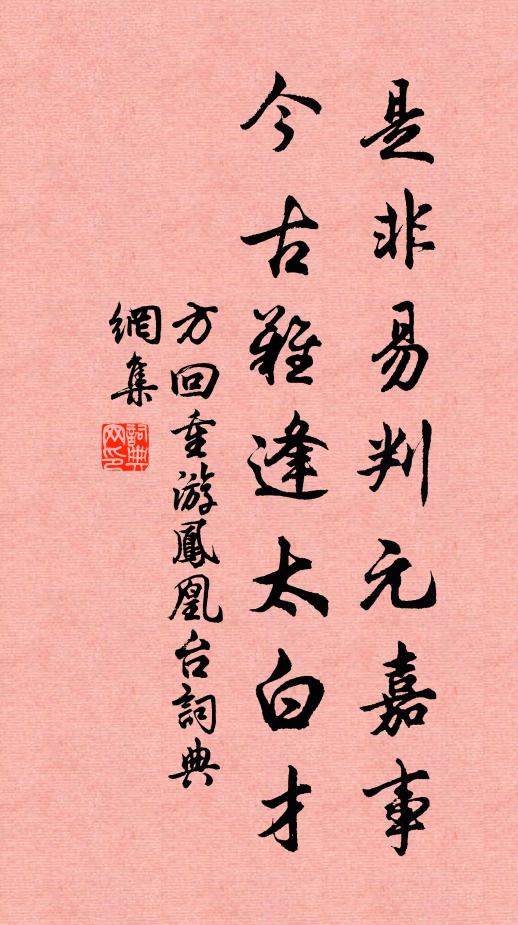 是非易判元嘉事
今古難逢太白才
方回重游鳳凰台詞典
網集
詞典
网印